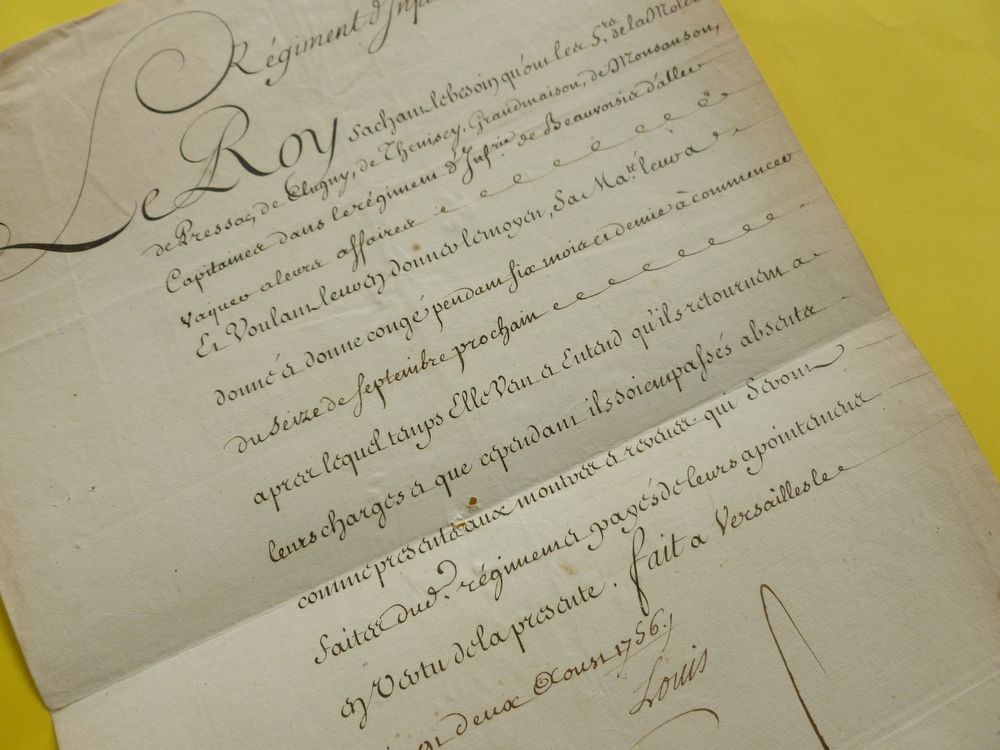 Régiment d'Infa
Le Roy sachant le besoin qu'ont les S.rs de la Molere
de Pressac, de Clugny, de Thenissey, Grandmaison, de Monsanson,
Capitaines dans le régiment d'Infrie. de Beauvoisis d'aller
vaquer a leurs affaires
Et Voulant leur en donner le moyen, Sa Ma.té leur a
donné et donne congé pendant six mois et demie à commencer
du seize de septembre prochain
apres lequel temps Elle Veut et Entend qu'ils retournent a
leurs charges et que cependant ils soient passés absents
comme presents aux montres et reveues qui Seront
faites dud.t régiment et payés de leurs apointements
en vertu de la presente. fait a Versailles le
deux Aoust 1756.
Louis